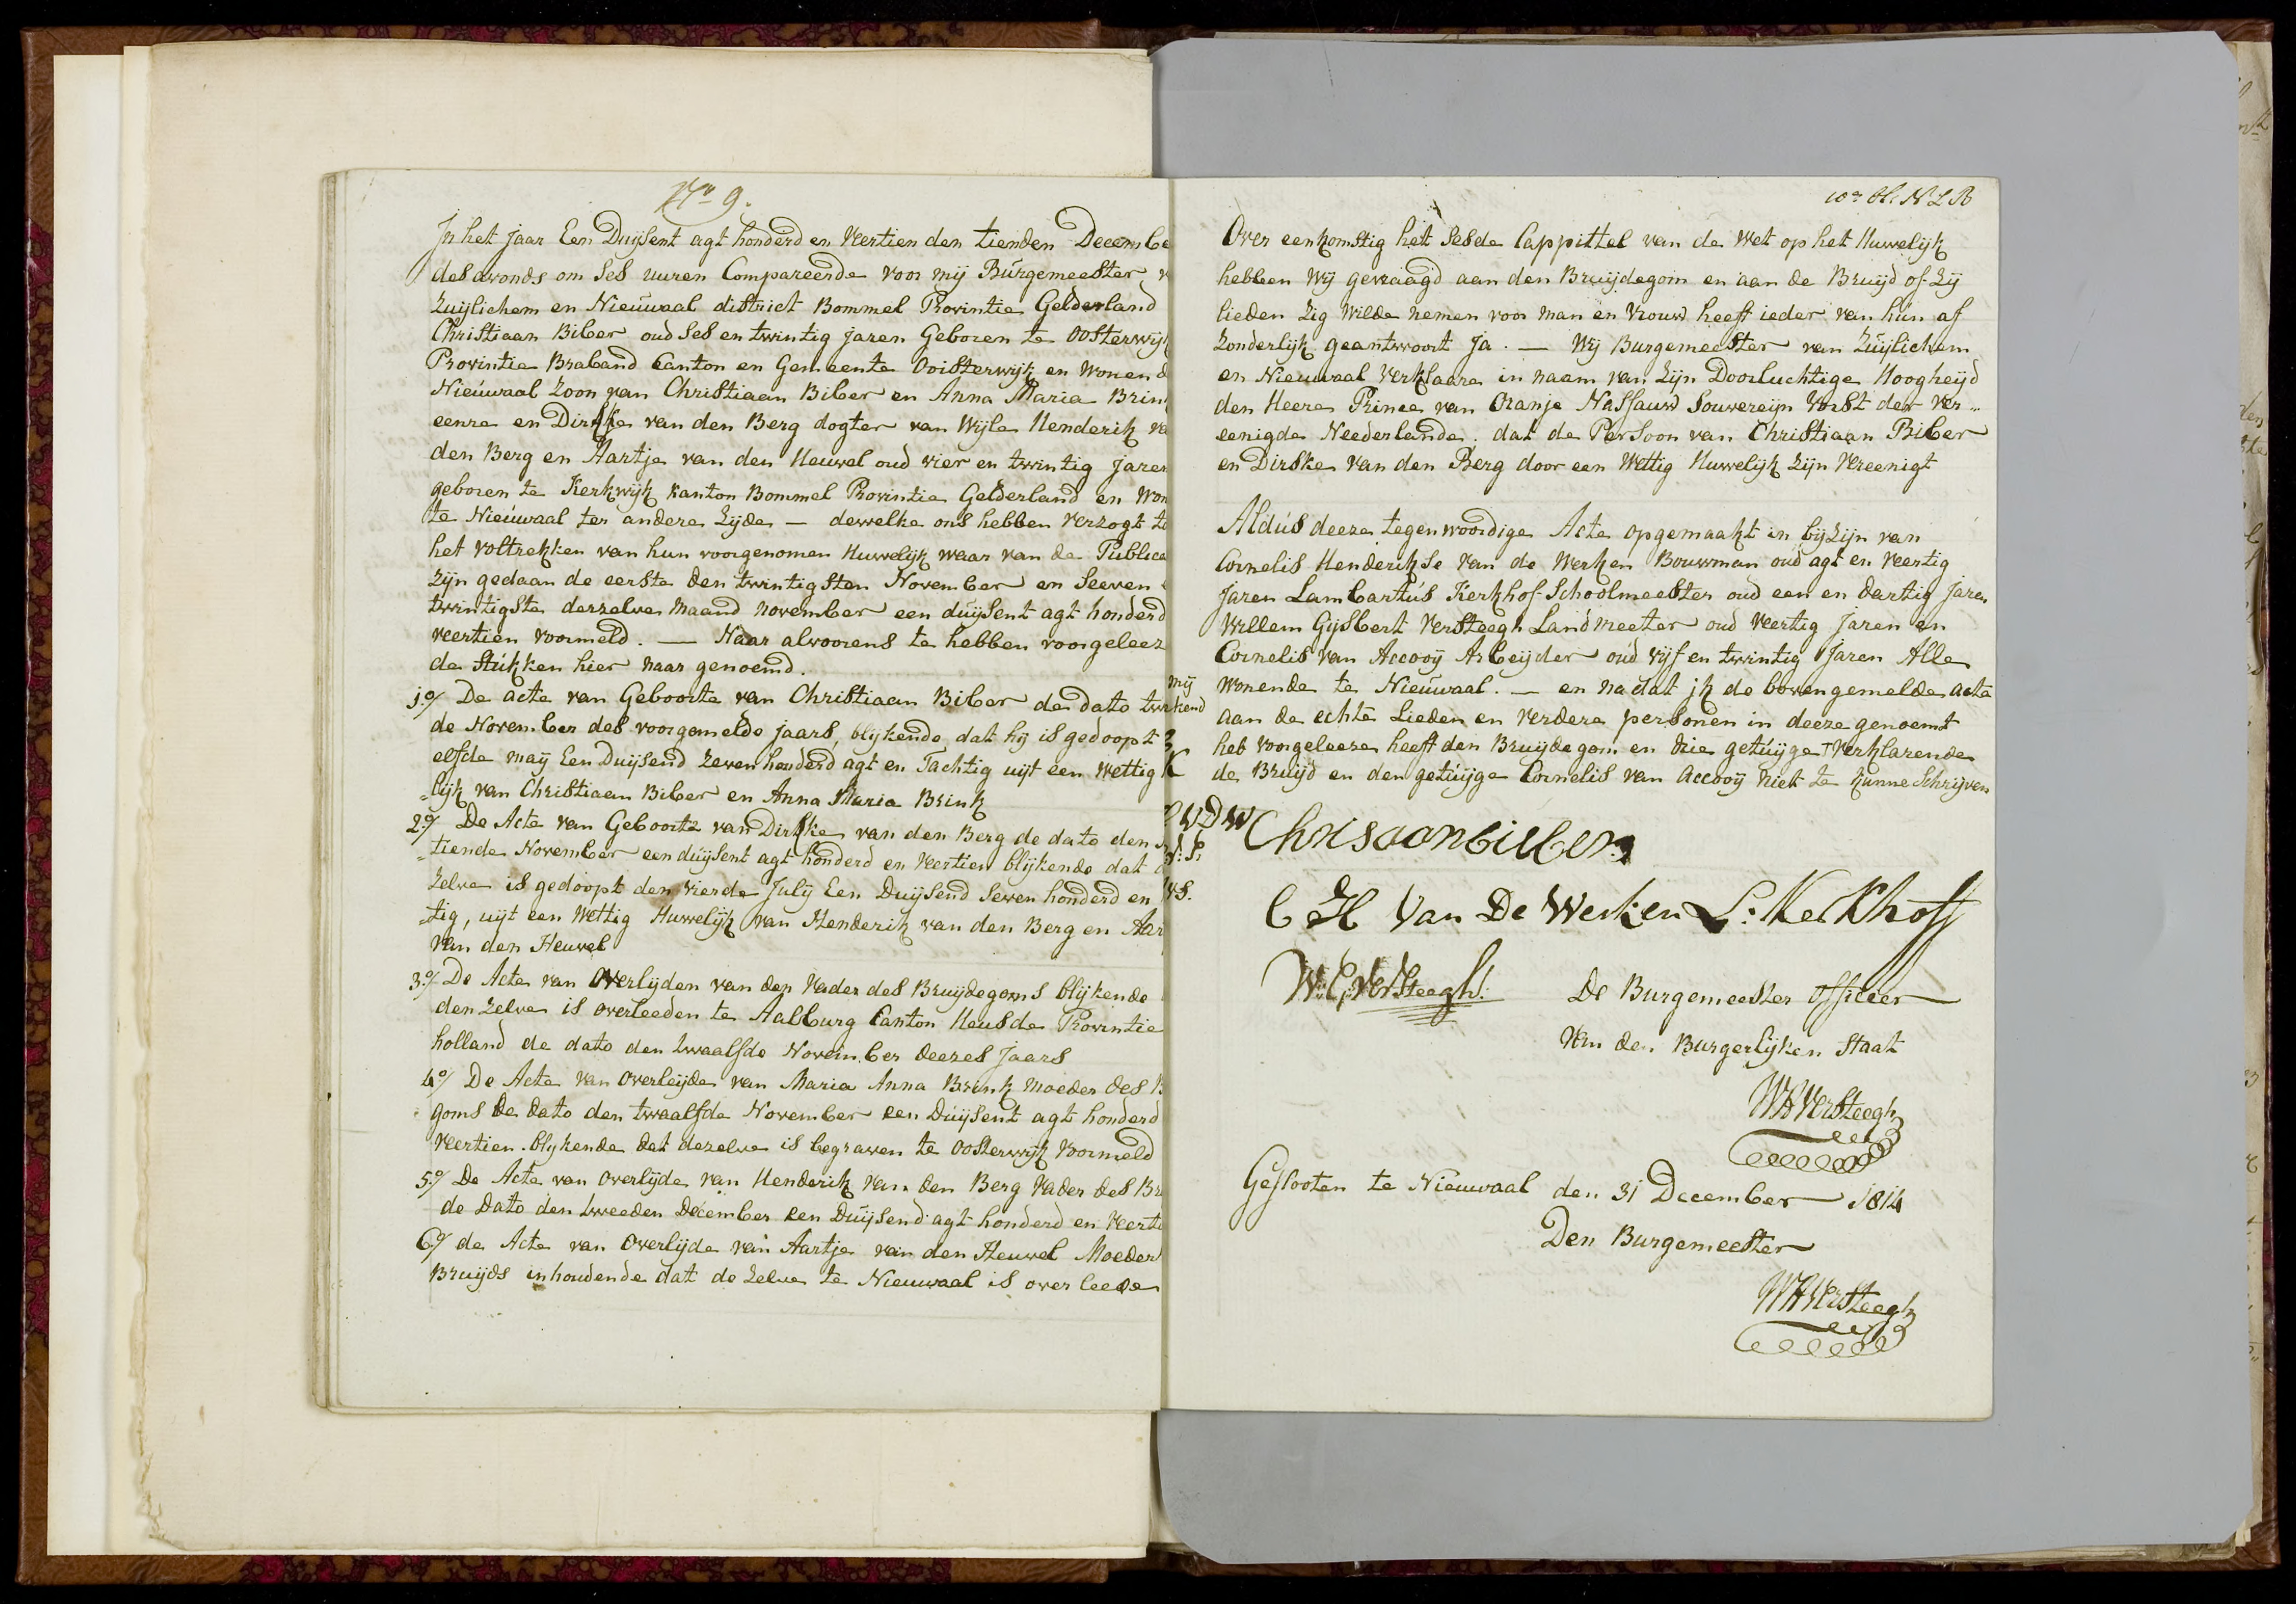 No 9.
In het jaar Een Duijsent agt honderd en Veertien den tienden Decembe
des avonds om ses uuren Compareerde voor mij Burgemeester v
Zuijlichem en Nieuwaal district Bommel Provintie Gelderland
Christiaan Biber oud ses en twintig jaren Geboren te Oosterwijk
Provintie Braband Canton en Gemeente Ooisterwijk en Wonend
Nieuwaal Zoon van Christiaan Biber en Anna Maria Brink
eenre en Dirske van den Berg dogter van Wijle Henderik va
den Berg en Aartje van den Heuvel oud vier en twintig jaren
geboren te Kerkwijk kanton Bommel Provintie Gelderland en Won
te Nieuwaal ter andere Zijde — dewelke ons hebben Verzogt to
het voltrekken van hun voorgenomen Huwelijk waar van de Publica
Zijn gedaan de eerste den twintigsten November en Seeven
twintigste derzelver Maand november een duijsent agt honderd
veertien voormeld. — Naar alvoorens te hebben voorgeleez
de Stukken hier naar genoemd.
1o/ De acte van Geboorte van Christiaan Biber de dato tw
de November des voorgemelde jaars, blijkende dat hij is gedoopt
elfde maij Een Duijsend Zeven honderd agt en Tachtig uijt een Wettig
lijk van Christiaan Biber en Anna Maria Brink
2o/ De Acte van Geboorte van Dirske van den Berg de dato den
tiende November een duijsent agt honderd en Veertien blijkende dat d
Zelve is gedoopt den vierde Julij Een Duijsend Seven honderd en
tig, uijt een Wettig Huwelijk van Henderik van den Berg en Aar
van den Heuvel
3o/ De Acte van Overlijden van den Vader des Bruijdegoms blijkende
den Zelve is overleeden te Aalburg Canton Heusde Provintie
holland de dato den twaalfde November deezes Jaars
4o/ De Acte van Overleijde van Maria Anna Brink Moeder des B
goms de dato den twaalfde November een Duijsent agt honderd
Veertien. blykende dat dezelve is begraven te Oosterwijk Voormeld
5o/ De Acte van Overlijde van Henderik van den Berg Vader des Br
de Dato den tweeden December een Duijsend agt honderd en Veerti
6o/ de Acte van Overlijde van Aartje van den Heuvel Moeder
Bruijds inhoudende dat de Zelve te Nieuwaal is over leede
Over eenkomstig het Sesde Cappittel van de Wet op het Huwelijk
hebben Wij gevraagd aan den Bruijdegom en aan de Bruijd of Zij
lieden Zig Wilde nemen voor Man en Vrouw heeft ieder van hun af
Zonderlijk geantwoort Ja. — Wij Burgemeester van Zuijlichem
en Nieuwaal Verklaare in naam van Zijn Doorluchtige Hoogheijd
den Heere Prince van Oranje Nassauw Souvereijn Vorst der Ver-
eenigde Neederlande. dat de Persoon van Christiaan Biber
en Dirske van den Berg door een Wettig Huwelijk Zijn Vereenigt
Aldus deeze tegenwoordige Acte opgemaakt in bijZijn van
Cornelis Henderikse van de Werken Bouwman oud agt en Veertig
Jaren Lambartus Kerkhof Schoolmeester oud een en dartig jaren
Willem Gijsbert Versteegh Landmeeter oud Veertig jaren en
Cornelis van Accooij Arbeijder oud vijf en twintig Jaren Alle
Wonende te Nieuwaal. — en na dat ik de bovengemelde acte
aan de echte Lieden en Verdere personen in deeze genoemt
heb voorgeleeze heeft den Bruijdegom en drie getuijge Verklarende
de Bruijd en den getuijge Cornelis van Accooij niet te kunne Schrijven
mij
kend
Chrisaanbieber
C H Van De Werken L: Kerkhoff
W: G: Versteegh:
De Burgemeester officeer
Van den Burgerlijken Staat
WHVersteegh
Geslooten te Nieuwaal den 31 December 1814
Den Burgemeester
WHVersteegh